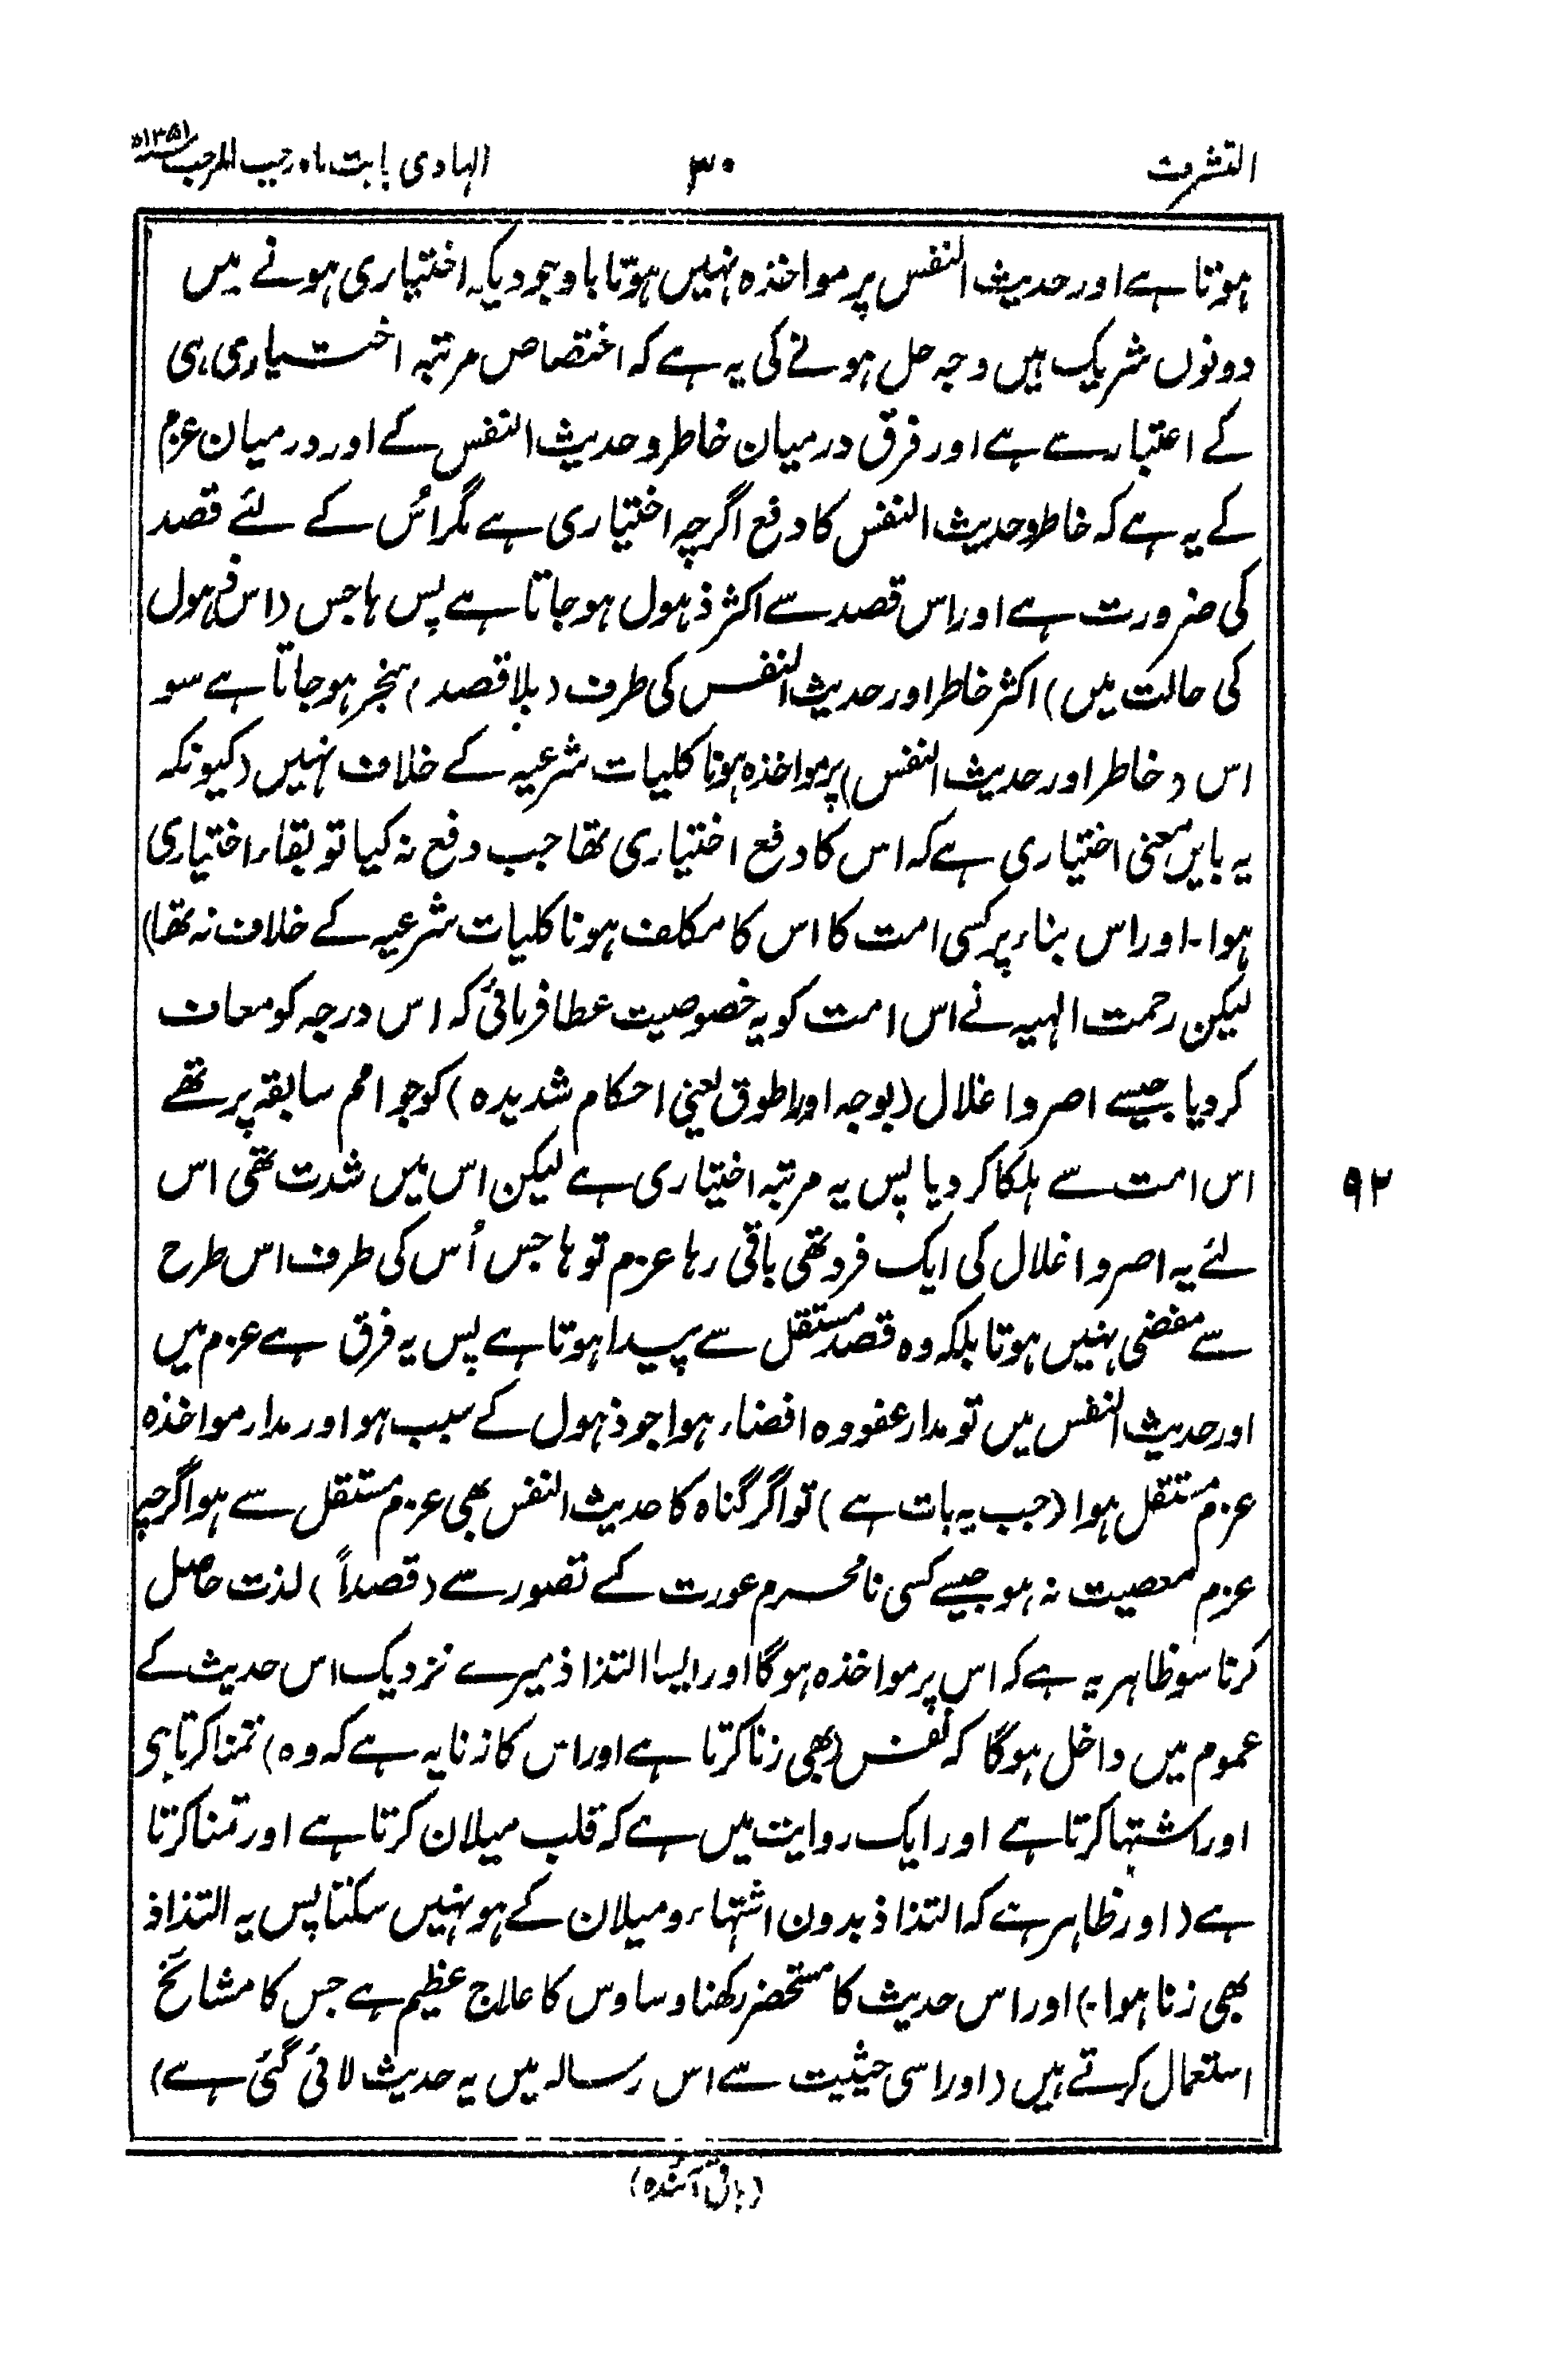 التشرف
۳۰
الہادی بابت ماہ رجب المرجب ۱۳۵۱ھ
ہوتا ہے اور حدیث النفس پر مواخذہ نہیں ہوتا باوجودیکہ اختیاری ہونے میں
دونوں شریک ہیں وجہ حل ہونے کی یہ ہے کہ اختصاص مرتبہ اختیاری ہی
کے اعتبار سے ہے اور فرق درمیان خاطر و حدیث النفس کے اور درمیان عزم
کے یہ ہے کہ خاطر و حدیث النفس کا دفع اگرچہ اختیاری ہے مگر اُس کے لئے قصد
کی ضرورت ہے اور اس قصد سے اکثر ذہول ہو جاتا ہے پس ہاجس (اس ذہول
کی حالت میں) اکثر خاطر اور حدیث النفس کی طرف (بلا قصد) منجر ہو جاتا ہے سو
اس (خاطر اور حدیث النفس) پر مواخذہ ہونا کلیات شرعیہ کے خلاف نہیں (کیونکہ
یہ بایں معنی اختیاری ہے کہ اس کا دفع اختیاری تھا جب دفع نہ کیا تو بقاء اختیاری
ہوا۔ اور اس بناء پر کسی امت کا اس کا مکلف ہونا کلیات شرعیہ کے خلاف نہ تھا)
لیکن رحمت الہیہ نے اس امت کو یہ خصوصیت عطا فرمائی کہ اس درجہ کو معاف
کر دیا جیسے اصر و اغلال (بوجہ اور طوق یعنی احکام شدیدہ) کو جو امم سابقہ پر تھے
اس امت سے ہلکا کر دیا پس یہ مرتبہ اختیاری ہے لیکن اس میں شدت تھی اس
۹۲
لئے یہ اصر و اغلال کی ایک فرد تھی باقی رہا عزم تو ہاجس اُس کی طرف اس طرح
سے مفضی نہیں ہوتا بلکہ وہ قصد مستقل سے پیدا ہوتا ہے پس یہ فرق ہے عزم میں
اور حدیث النفس میں تو مدار عفو وہ افضاء ہوا جو ذہول کے سبب ہو اور مدار مواخذہ
عزم مستقل ہوا (جب یہ بات ہے) تو اگر گناہ کا حدیث النفس بھی عزم مستقل سے ہو اگرچہ
عزم معصیت نہ ہو جیسے کسی نامحرم عورت کے تصور سے (قصداً) لذت حاصل
کرنا سو ظاہر یہ ہے کہ اس پر مواخذہ ہوگا اور ایسا التذاذ میرے نزدیک اس حدیث کے
عموم میں داخل ہوگا کہ نفس (بھی زنا کرتا ہے اور اس کا زنا یہ ہے کہ وہ) تمنا کرتا ہی
اور اشتہا کرتا ہے اور ایک روایت میں ہے کہ قلب میلان کرتا ہے اور تمنا کرتا
ہے (اور ظاہر ہے کہ التذاذ بدون اشتہاء و میلان کے ہو نہیں سکتا پس یہ التذاذ
بھی زنا ہوا۔) اور اس حدیث کا مستحضر رکھنا وساوس کا علاج عظیم ہے جس کا مشائخ
استعمال کرتے ہیں (اور اسی حیثیت سے اس رسالہ میں یہ حدیث لائی گئی ہے)
(باقی آئندہ)